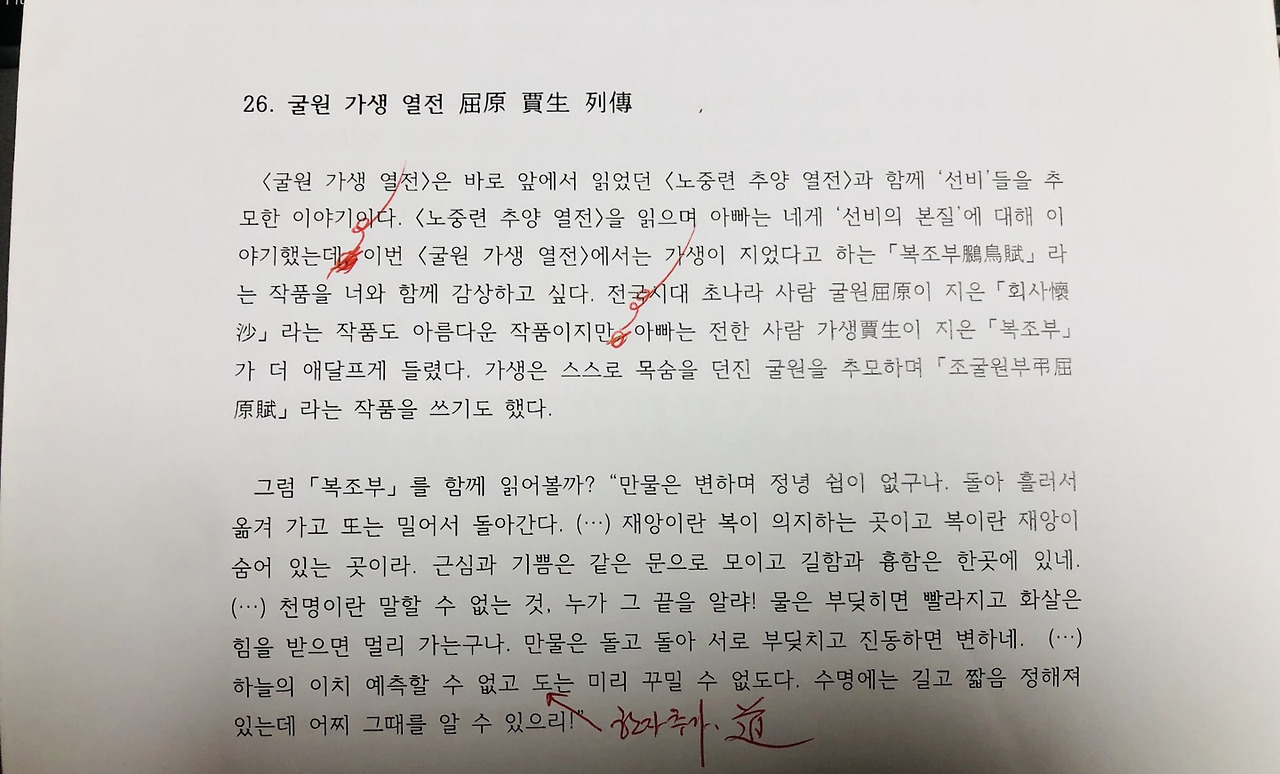 26. 굴원 가생 열전 屈原 賈生 列傳
〈굴원 가생 열전〉은 바로 앞에서 읽었던 〈노중련 추양 열전〉과 함께 ‘선비’들을 추
모한 이야기이다. 〈노중련 추양 열전〉을 읽으며 아빠는 네게 ‘선비의 본질’에 대해 이
야기했는데 이번 〈굴원 가생 열전〉에서는 가생이 지었다고 하는 「복조부鵩鳥賦」라
는 작품을 너와 함께 감상하고 싶다. 전국시대 초나라 사람 굴원屈原이 지은 「회사懷
沙」라는 작품도 아름다운 작품이지만 아빠는 전한 사람 가생賈生이 지은 「복조부」
가 더 애달프게 들렸다. 가생은 스스로 목숨을 던진 굴원을 추모하며 「조굴원부弔屈
原賦」라는 작품을 쓰기도 했다.
그럼 「복조부」를 함께 읽어볼까? “만물은 변하며 정녕 쉼이 없구나. 돌아 흘러서
옮겨 가고 또는 밀어서 돌아간다. (…) 재앙이란 복이 의지하는 곳이고 복이란 재앙이
숨어 있는 곳이라. 근심과 기쁨은 같은 문으로 모이고 길함과 흉함은 한곳에 있네.
(…) 천명이란 말할 수 없는 것, 누가 그 끝을 알랴! 물은 부딪히면 빨라지고 화살은
힘을 받으면 멀리 가는구나. 만물은 돌고 돌아 서로 부딪치고 진동하면 변하네. (…)
하늘의 이치 예측할 수 없고 도는 미리 꾸밀 수 없도다. 수명에는 길고 짧음 정해져
있는데 어찌 그때를 알 수 있으리!”
한자추가. 道